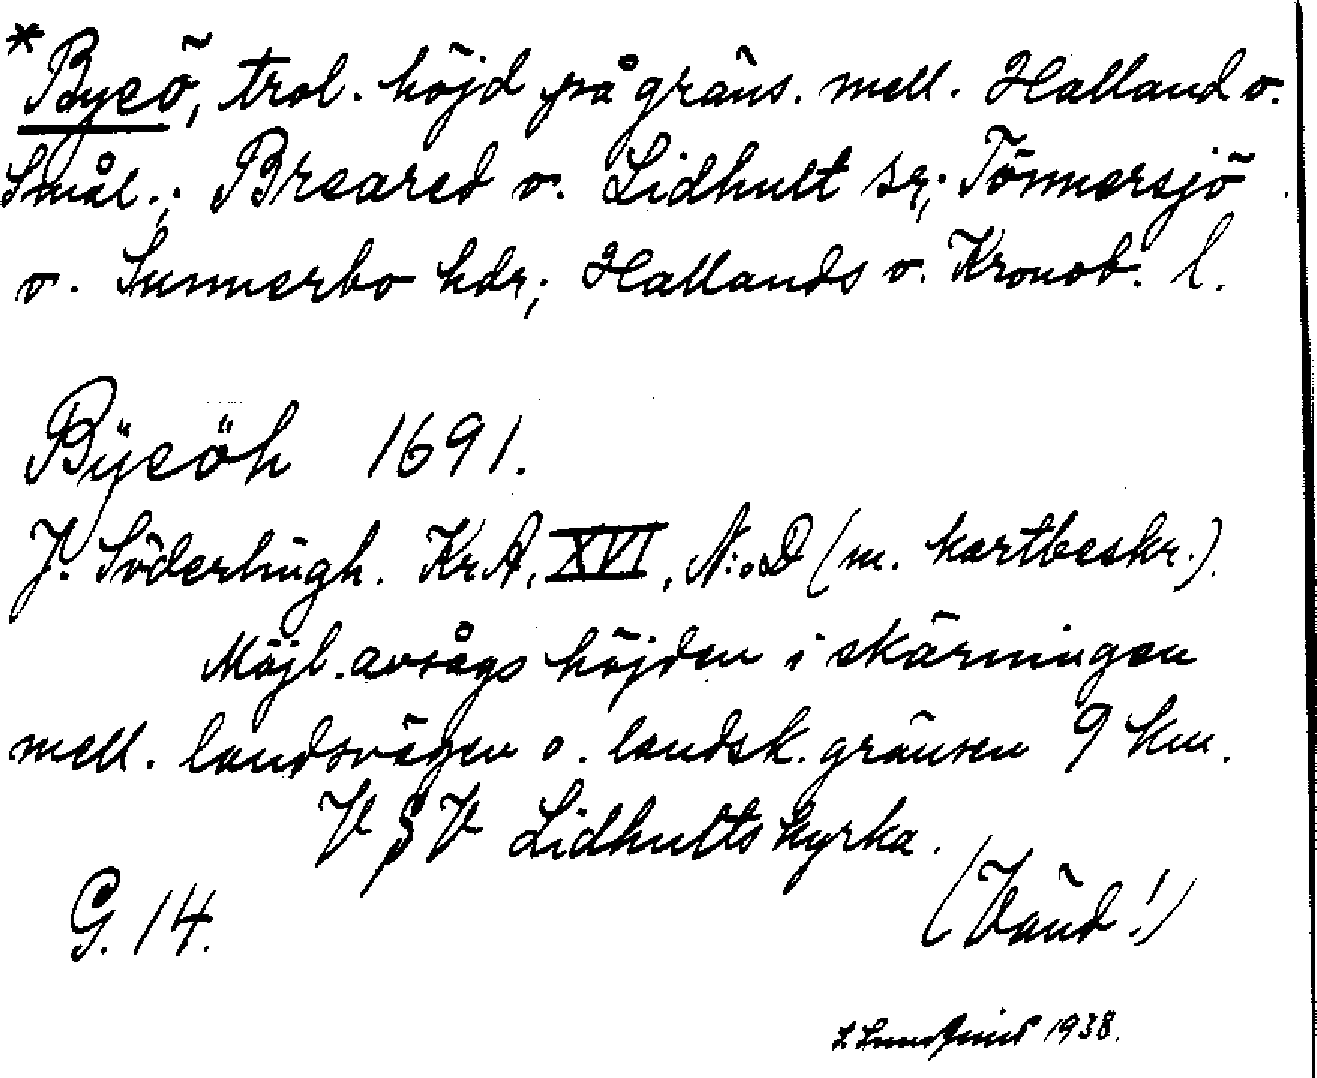 *Byeö, trol. höjd på gräns. mell. Halland o.
Smål.; Breared o. Lidhult sr; Tönnersjö
o. Sunnerbo hdr; Hallands o. Kronob. l.
Bÿeöh 1691.
J. Söderlingh. KrA, XVI, N:o D (m. kartbeskr.).
Möjl. avsågs höjden i skärningen
mell. landsvägen o. landsk. gränsen 9 km.
V § V Lidhults kyrka.
G. 14.
(Vänd!)
1938.